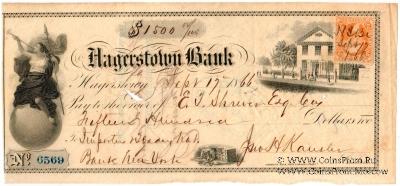 $1500 00/100
Hagerstown Bank
Hagerstown Sept 17 1866
Pay to the order of E. T. Shriver Esq Cas
Fifteen Hundred Dollars
To Importers & Traders Nat.
Bank New York
No 6569
© www.CoinsProm.Ru
© www.CoinsMoscow.Ru